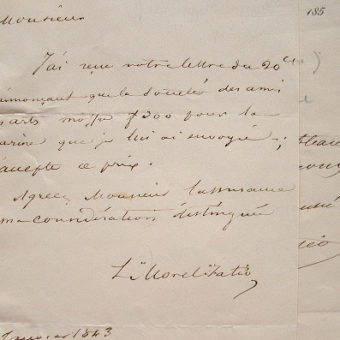 Monsieur
185
J'ai reçu votre lettre du 20 ct
m'annonçant que la Société des ami
arts m'offre f 300 pour la
marine que je lui ai envoyée ;
j'accepte ce prix.
Agréez Monsieur l'assurance
ma considération distinguée
L. Morel-Fatio
Janvier 1843